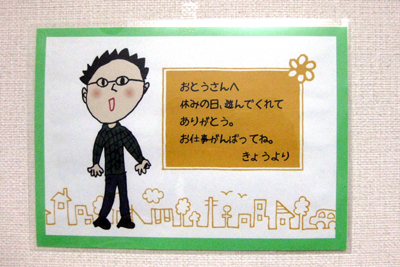 おとうさんへ
休みの日、遊んでくれて
ありがとう。
お仕事がんばってね。
きょうより